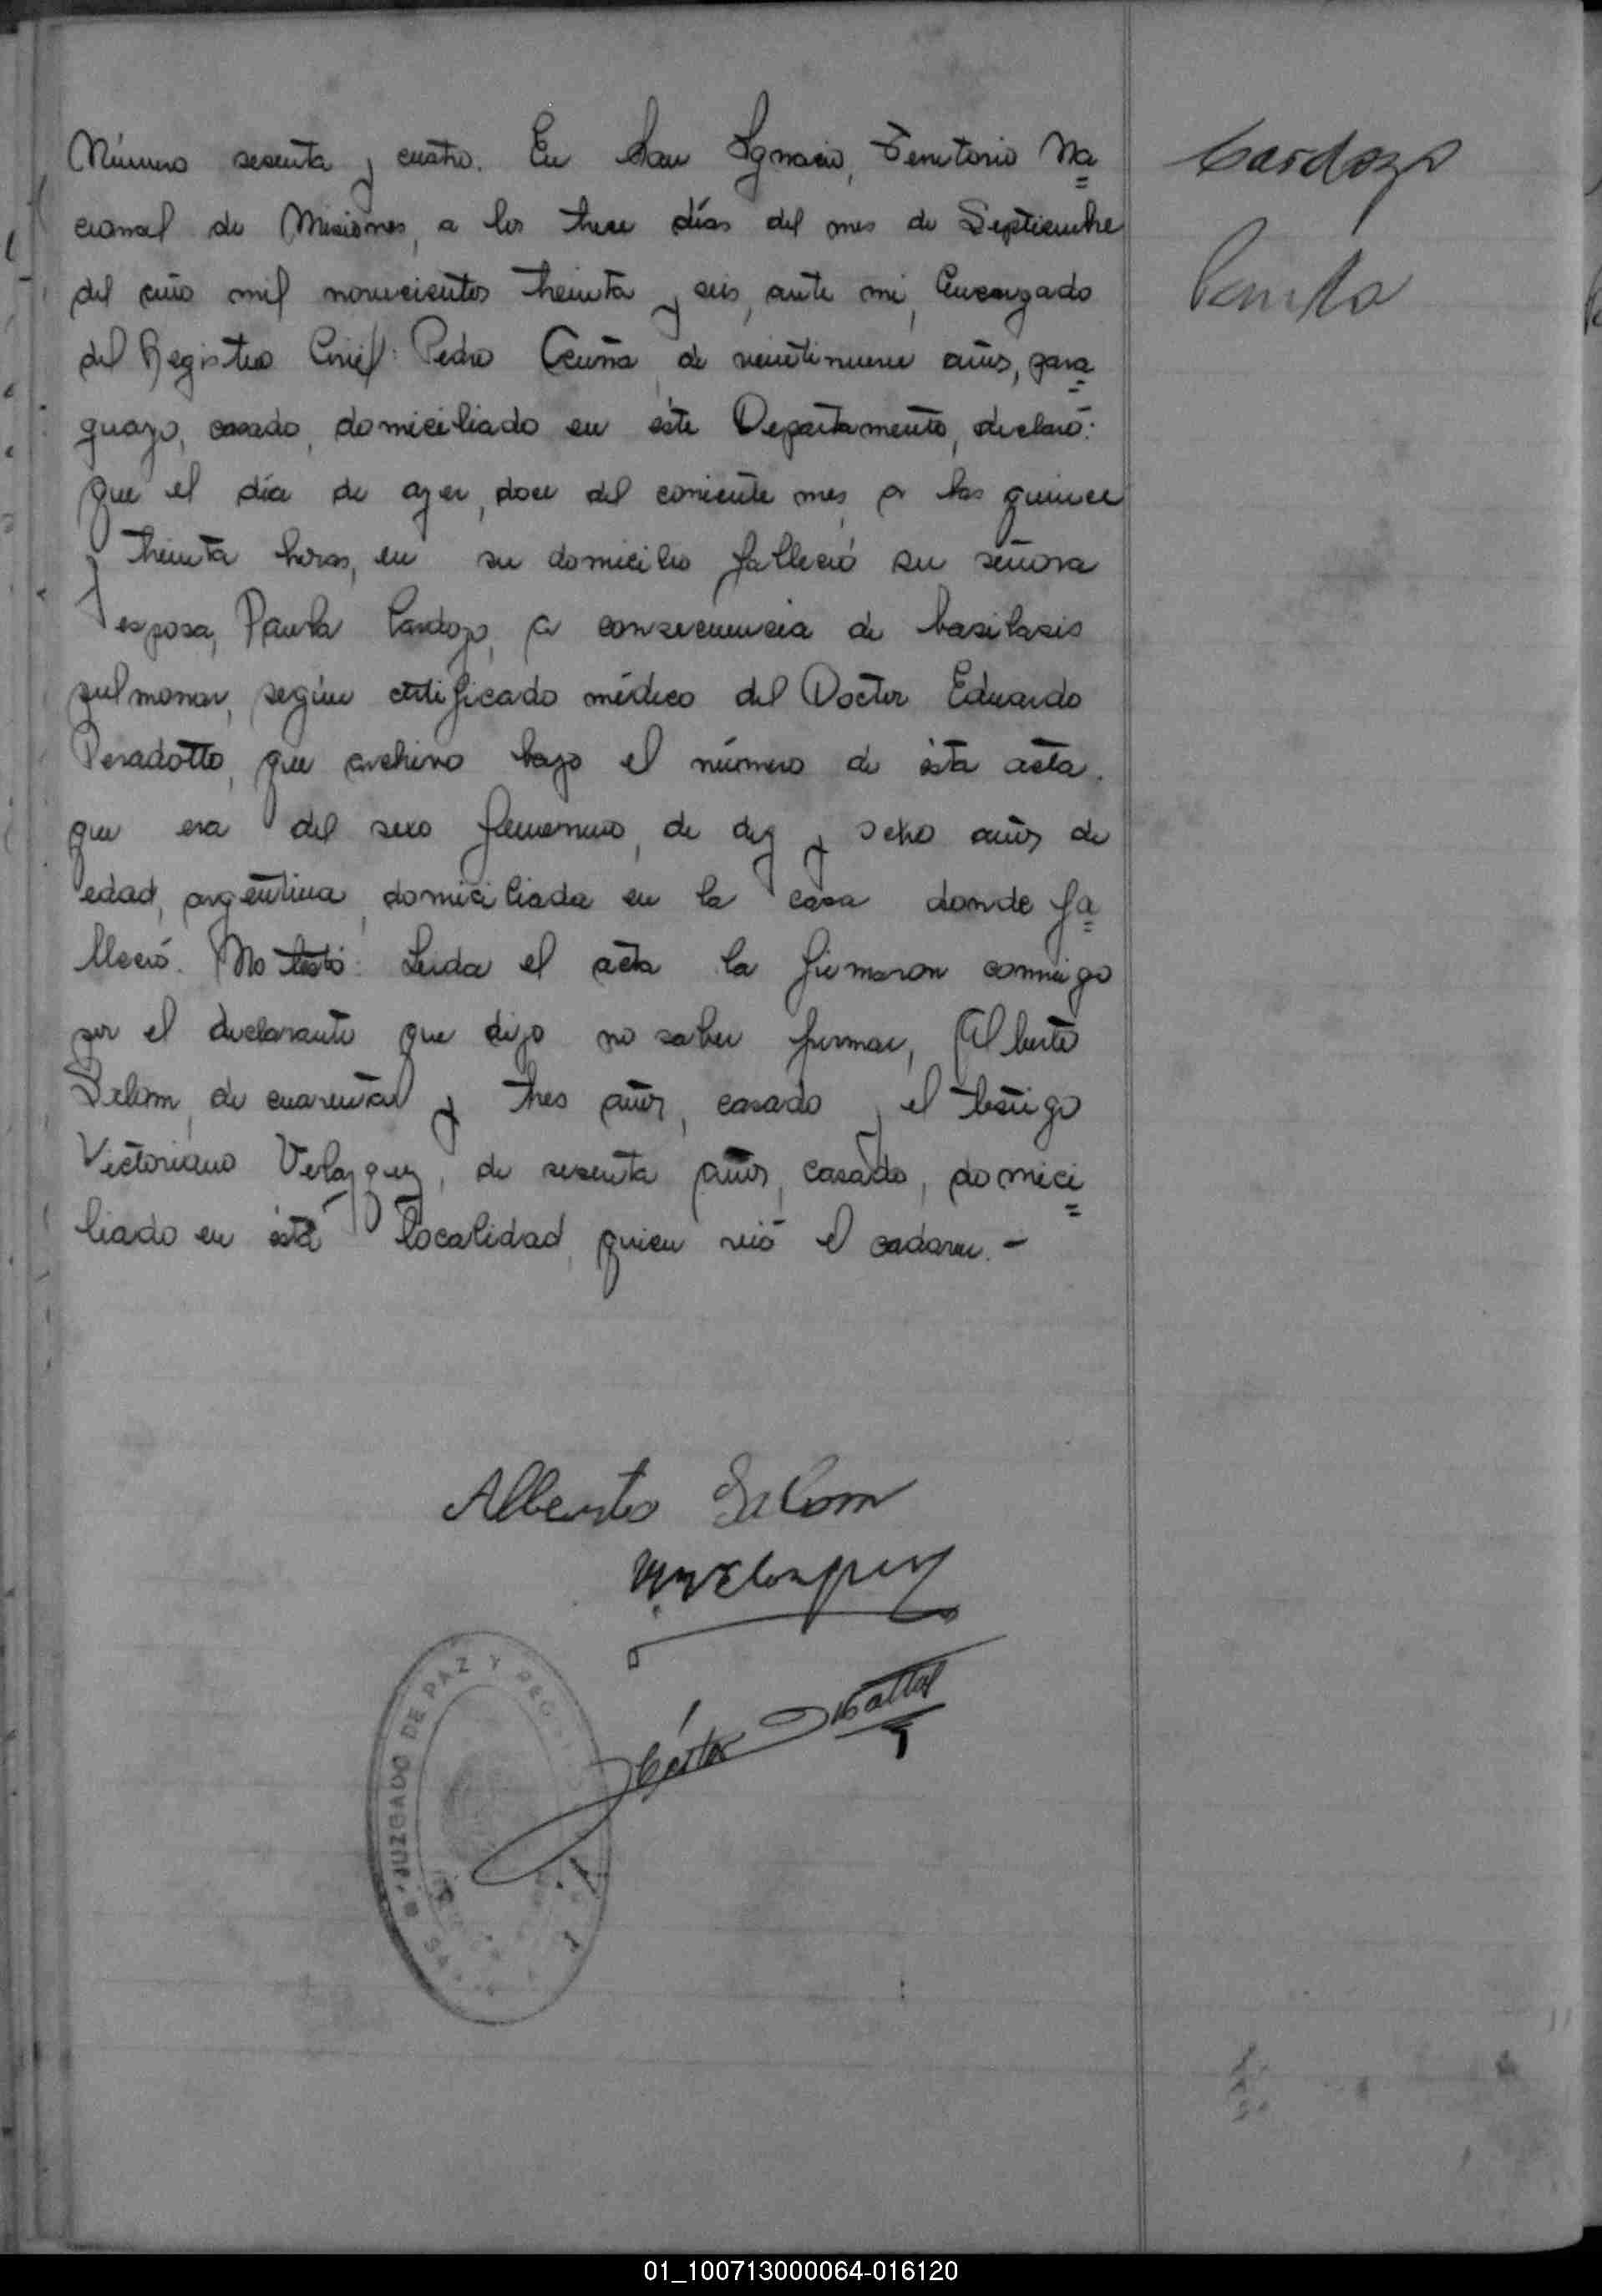 Número sesenta y cuatro. En San Ignacio, Territorio Na=
cional de Misiones, a los trece días del mes de Septiembre
del año mil novecientos treinta y seis, ante mi, Encargado
del Registro Civil: Pedro Acuña, de veintinueve años, para=
guayo, casado, domiciliado en éste Departamento, declaró:
que el día de ayer, doce del corriente mes, a las quince
y treinta horas, en su domicilio falleció su señora
esposa, Paula Cardozo, a consecuencia de basilosis
pulmonar, según certificado médico del Doctor Eduardo
Peradotto, que archivo bajo el número de ésta acta.
que era del sexo femenino, de diez y ocho años de
edad, argentina, domiciliada en la casa donde fa=
lleció. No testó. Leida el acta la firmaron conmigo
por el declarante que dijo no saber firmar, Alberto
Salom, de cuarenta y tres años, casado y el testigo
Victoriano Velazquez, de sesenta años, casado, domici=
liado en ésta localidad, quien vió el cadaver.-
Cardozo
Paula
Alberto Salom
Velazquez
Héctor
JUZGADO DE PAZ Y REG
01_100713000064-016120